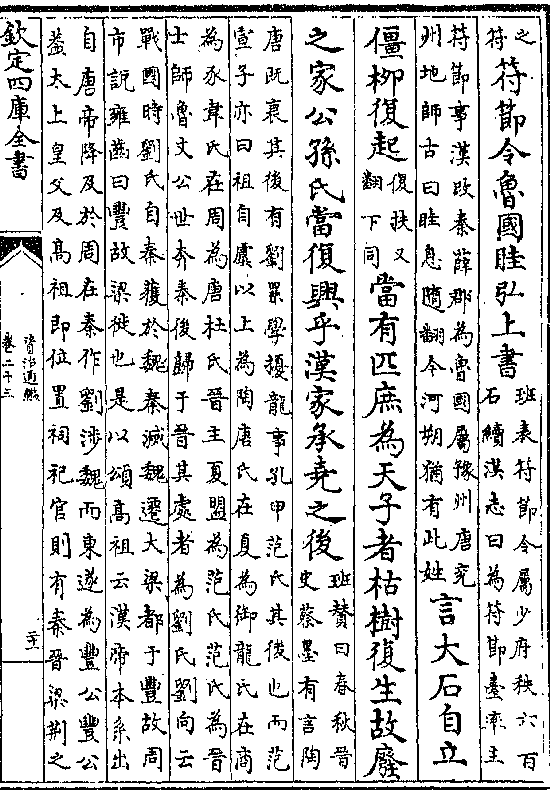 之
符
符節令魯國眭弘上書
班表符節令屬少府秩六百
石續漢志曰為符節臺率主
符節事漢改秦薛郡為魯國屬豫州唐兖
州地師古曰眭息隨翻今河朔猶有此姓
言大石自立
僵柳復起
復扶又
翻下同
當有匹庶為天子者枯樹復生故廢
之家公孫氏當復興乎漢家承堯之後
班贊曰春秋晉
史蔡墨有言陶
唐既衰其後有劉累學擾龍事孔甲范氏其後也而范
宣子亦曰祖自虞以上為陶唐氏在夏為御龍氏在商
為豕韋氏在周為唐杜氏晉主夏盟為范氏范氏為晉
士師魯文公世奔秦後歸于晉其處者為劉氏劉向云
戰國時劉氏自秦獲於魏秦滅魏遷大梁都于豐故周
市說雍齒曰豐故梁徙也是以頌高祖云漢帝本系出
自唐帝降及於周在秦作劉涉魏而東遂為豐公豐公
蓋太上皇父及高祖即位置祠祀官則有秦晉梁荆之
欽定四庫全書
資治通鑑
卷二十三